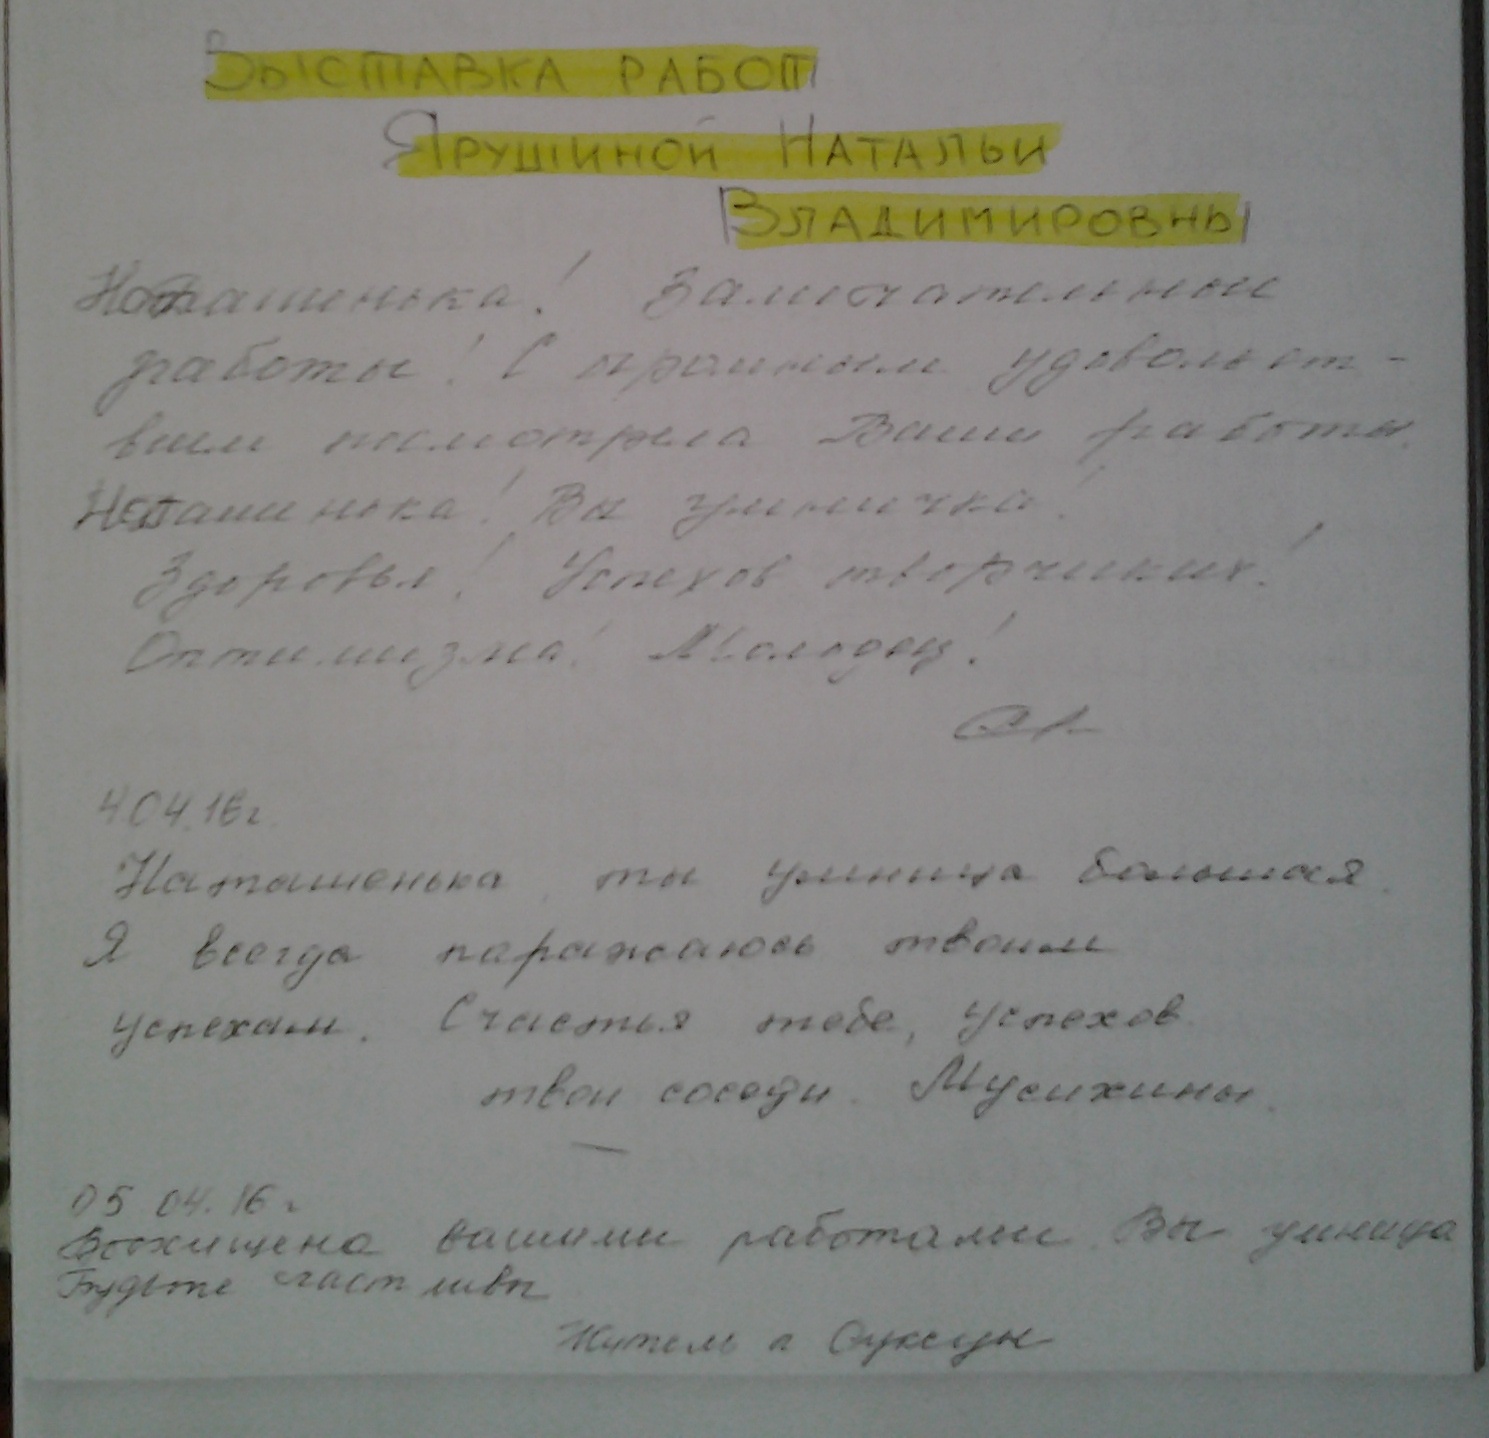 ВЫСТАВКА РАБОТ
ЯРУШИНОЙ НАТАЛЬИ
ВЛАДИМИРОВНЫ
Наташинька! Замечательные
работы! С огромным удовольст-
вием посмотрела Ваши работы.
Наташинька! Вы умничка!
Здоровья! Успехов творческих!
Оптимизма! Молодец!
4.04.16г.
Наташенька, ты умница большая.
Я всегда паражаюсь твоим
успехам. Счастья тебе, успехов
твои соседи. Мусихины.
05.04.16г
Восхищена вашими работами. Вы умница
Будьте счастливы
Житель п